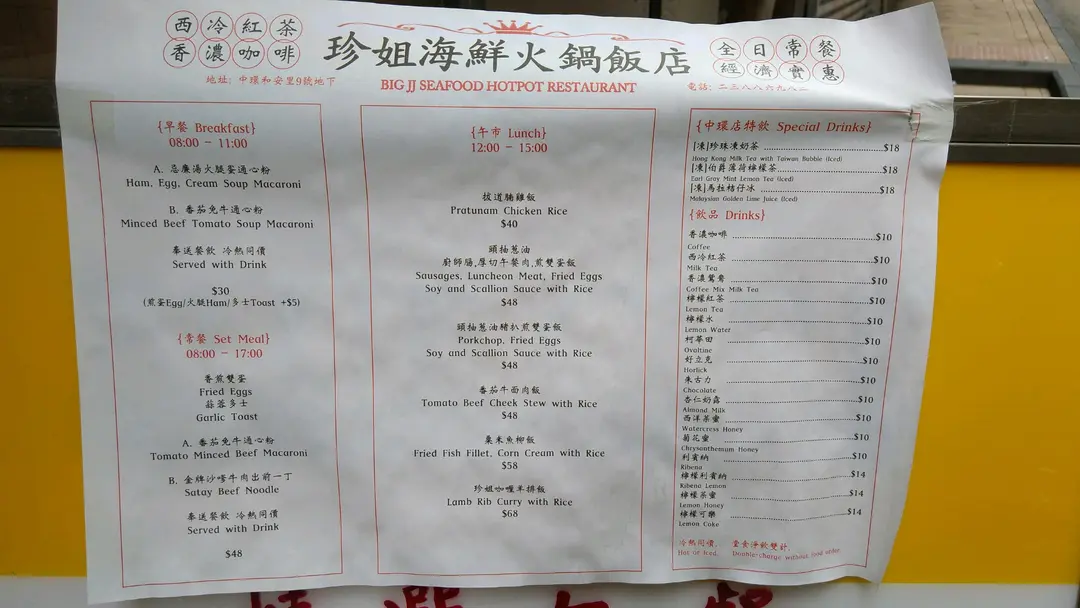 西冷紅茶
香濃咖啡
地址: 中環和安里9號地下
珍姐海鮮火鍋飯店
BIG JJ SEAFOOD HOTPOT RESTAURANT
全日常餐
經濟實惠
電話: 二三八八六九八二
{早餐 Breakfast}
08:00 - 11:00
A. 忌廉湯火腿蛋通心粉
Ham, Egg, Cream Soup Macaroni
B. 番茄免牛通心粉
Minced Beef Tomato Soup Macaroni
奉送餐飲 冷熱同價
Served with Drink
$30
(煎蛋Egg/火腿Ham/多士Toast +$5)
{常餐 Set Meal}
08:00 - 17:00
香煎雙蛋
Fried Eggs
蒜蓉多士
Garlic Toast
A. 番茄免牛通心粉
Tomato Minced Beef Macaroni
B. 金牌沙嗲牛肉出前一丁
Satay Beef Noodle
奉送餐飲 冷熱同價
Served with Drink
$48
{午市 Lunch}
12:00 - 15:00
拔道腩雞飯
Pratunam Chicken Rice
$40
頭抽蔥油
廚師腸,厚切午餐肉,煎雙蛋飯
Sausages, Luncheon Meat, Fried Eggs
Soy and Scallion Sauce with Rice
$48
頭抽蔥油豬扒煎雙蛋飯
Porkchop, Fried Eggs
Soy and Scallion Sauce with Rice
$48
番茄牛面肉飯
Tomato Beef Cheek Stew with Rice
$48
粟米魚柳飯
Fried Fish Fillet, Corn Cream with Rice
$58
珍姐咖喱羊排飯
Lamb Rib Curry with Rice
$68
{中環店特飲 Special Drinks}
[凍]珍珠凍奶茶 $18
Hong Kong Milk Tea with Taiwan Bubble (Iced)
[凍]伯爵薄荷檸檬茶 $18
Earl Gray Mint Lemon Tea (Iced)
[凍]馬拉桔仔冰 $18
Malaysian Golden Lime Juice (Iced)
{飲品 Drinks}
香濃咖啡 $10
Coffee
西冷紅茶 $10
Milk Tea
香濃鴛鴦 $10
Coffee Mix Milk Tea
檸檬紅茶 $10
Lemon Tea
檸檬水 $10
Lemon Water
柯華田 $10
Ovaltine
好立克 $10
Horlick
朱古力 $10
Chocolate
杏仁奶露 $10
Almond Milk
西洋菜蜜 $10
Watercress Honey
菊花蜜 $10
Chrysanthemum Honey
利賓納 $10
Ribena
檸檬利賓納 $14
Ribena Lemon
檸檬茶蜜 $14
Lemon Honey
檸檬可樂 $14
Lemon Coke
冷熱同價, 堂食淨飲雙計,
Hot or Iced, Doublecharge without food order